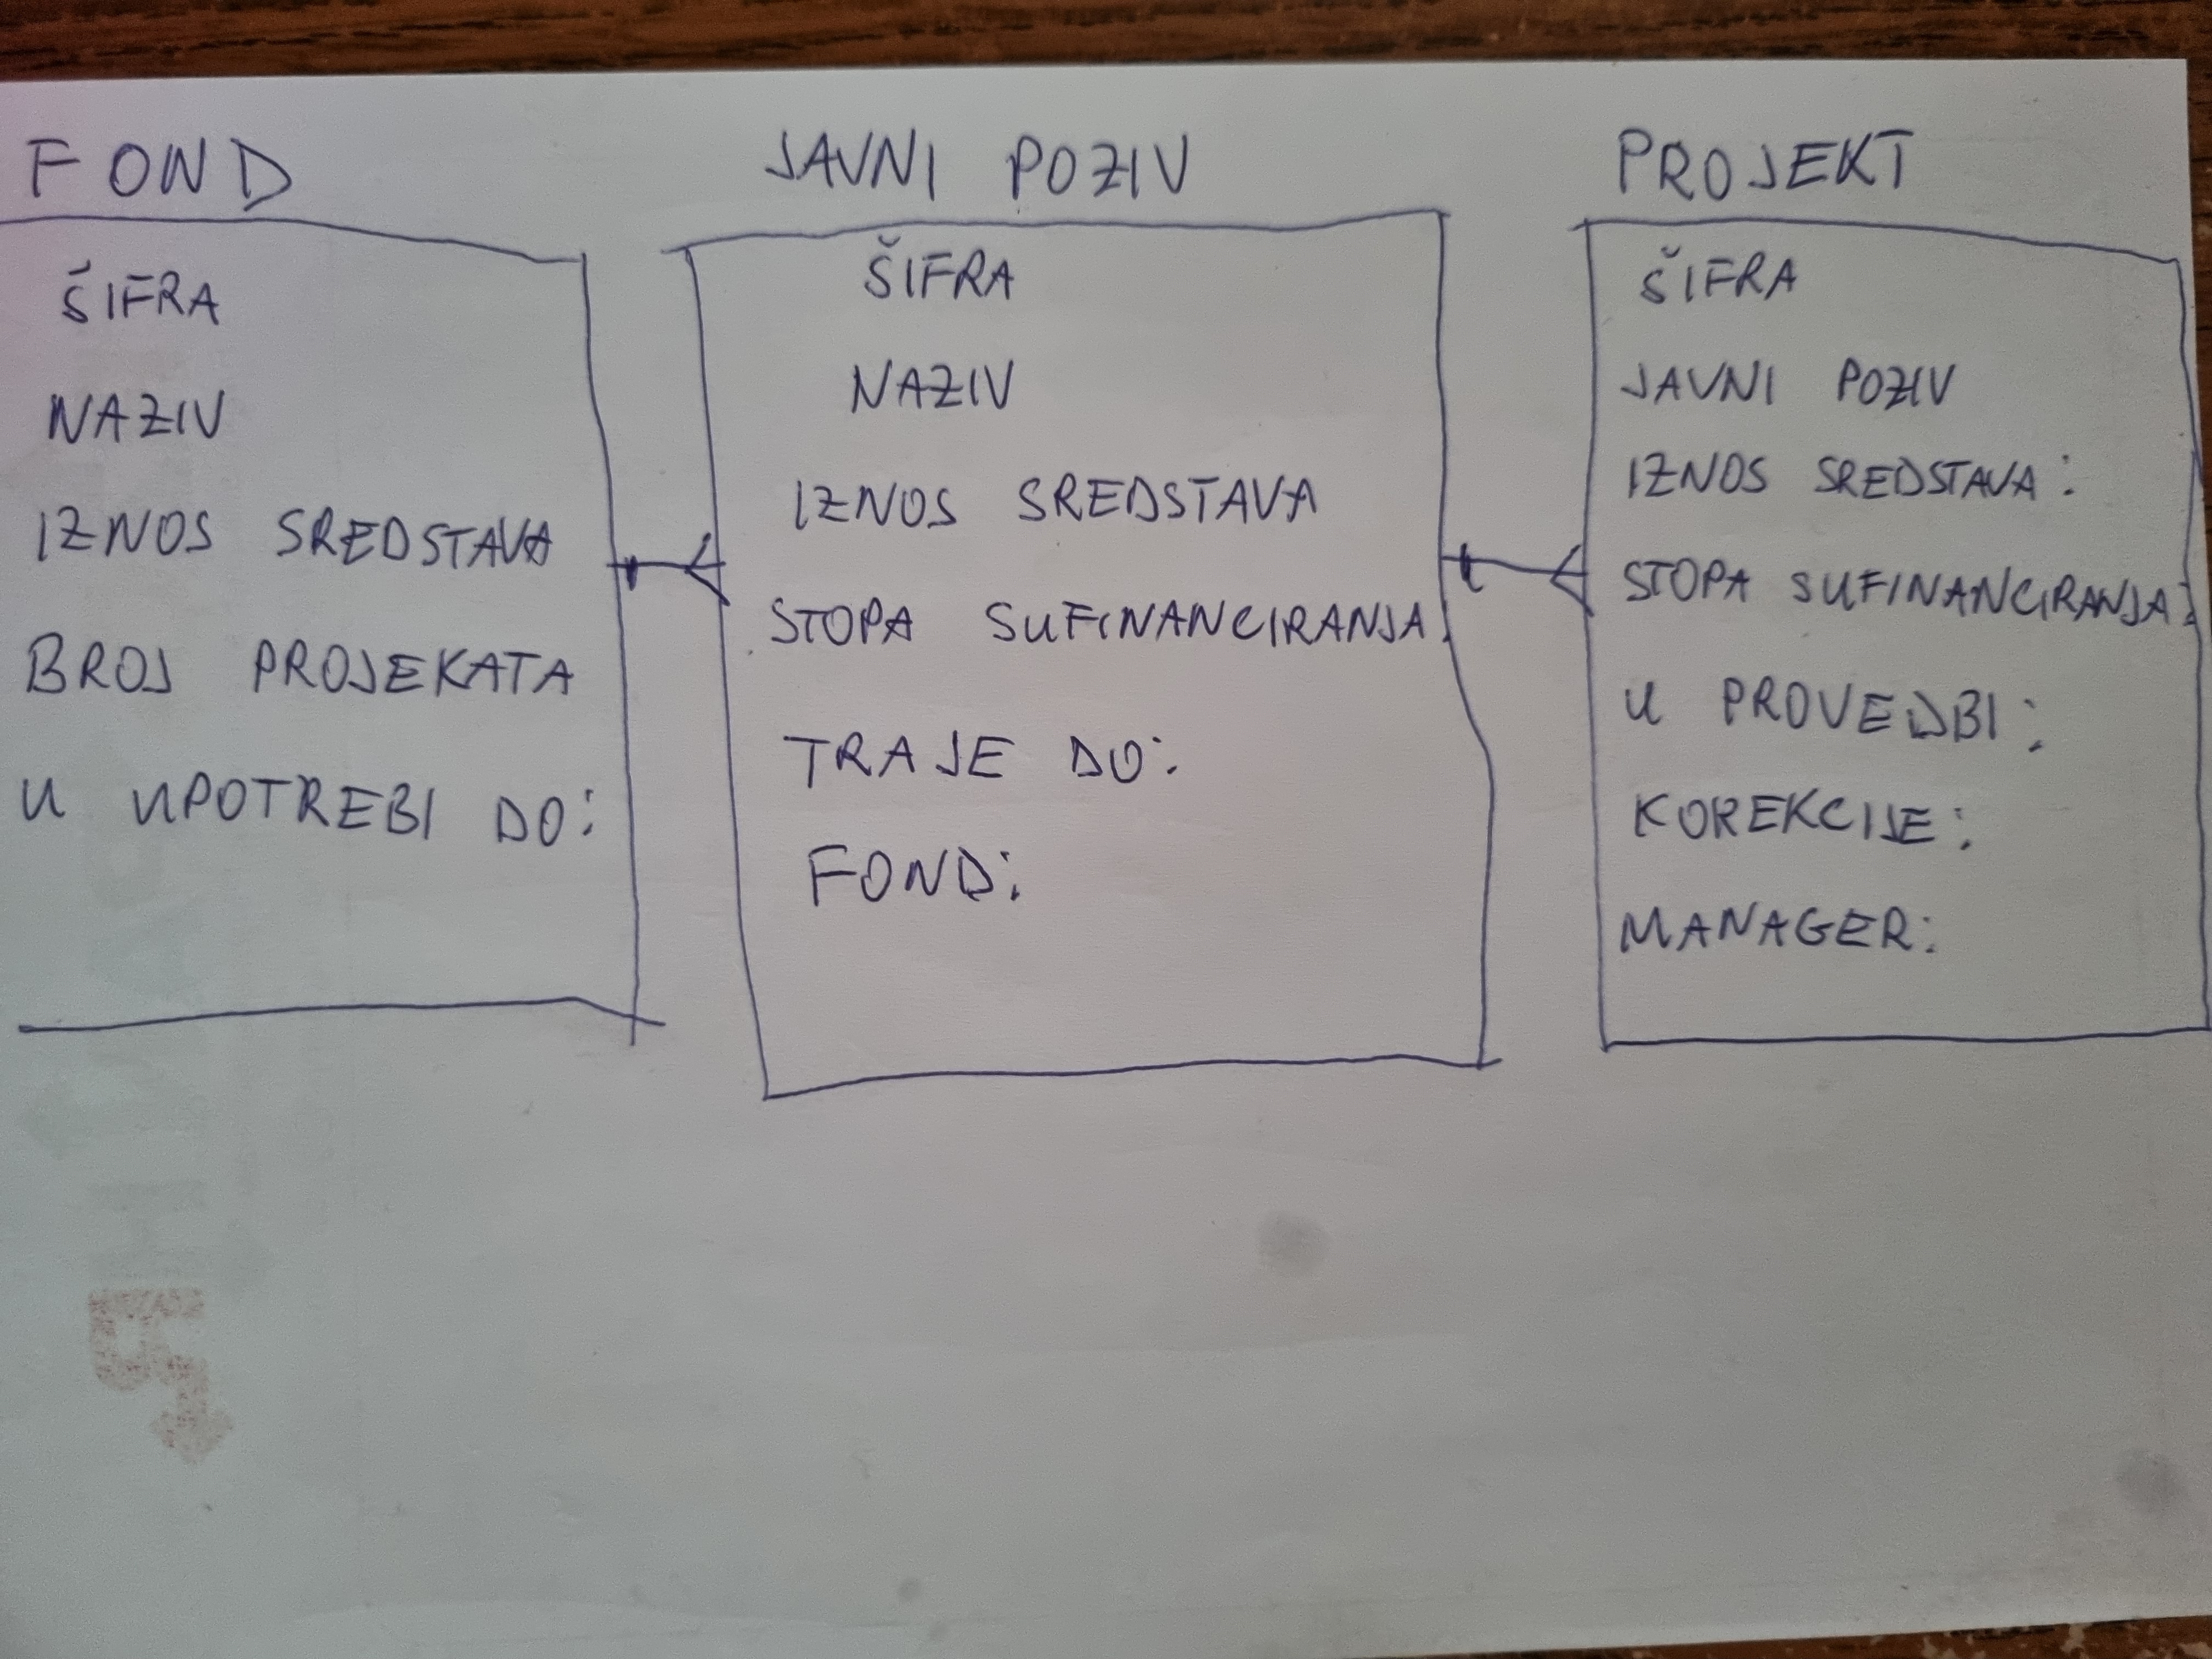 FOND
ŠIFRA
NAZIV
IZNOS SREDSTAVA
BROJ PROJEKATA
U UPOTREBI DO:
JAVNI POZIV
ŠIFRA
NAZIV
IZNOS SREDSTAVA
STOPA SUFINANCIRANJA
TRAJE DO:
FOND:
PROJEKT
ŠIFRA
JAVNI POZIV
IZNOS SREDSTAVA:
STOPA SUFINANCIRANJA:
U PROVEDBI:
KOREKCIJE:
MANAGER: